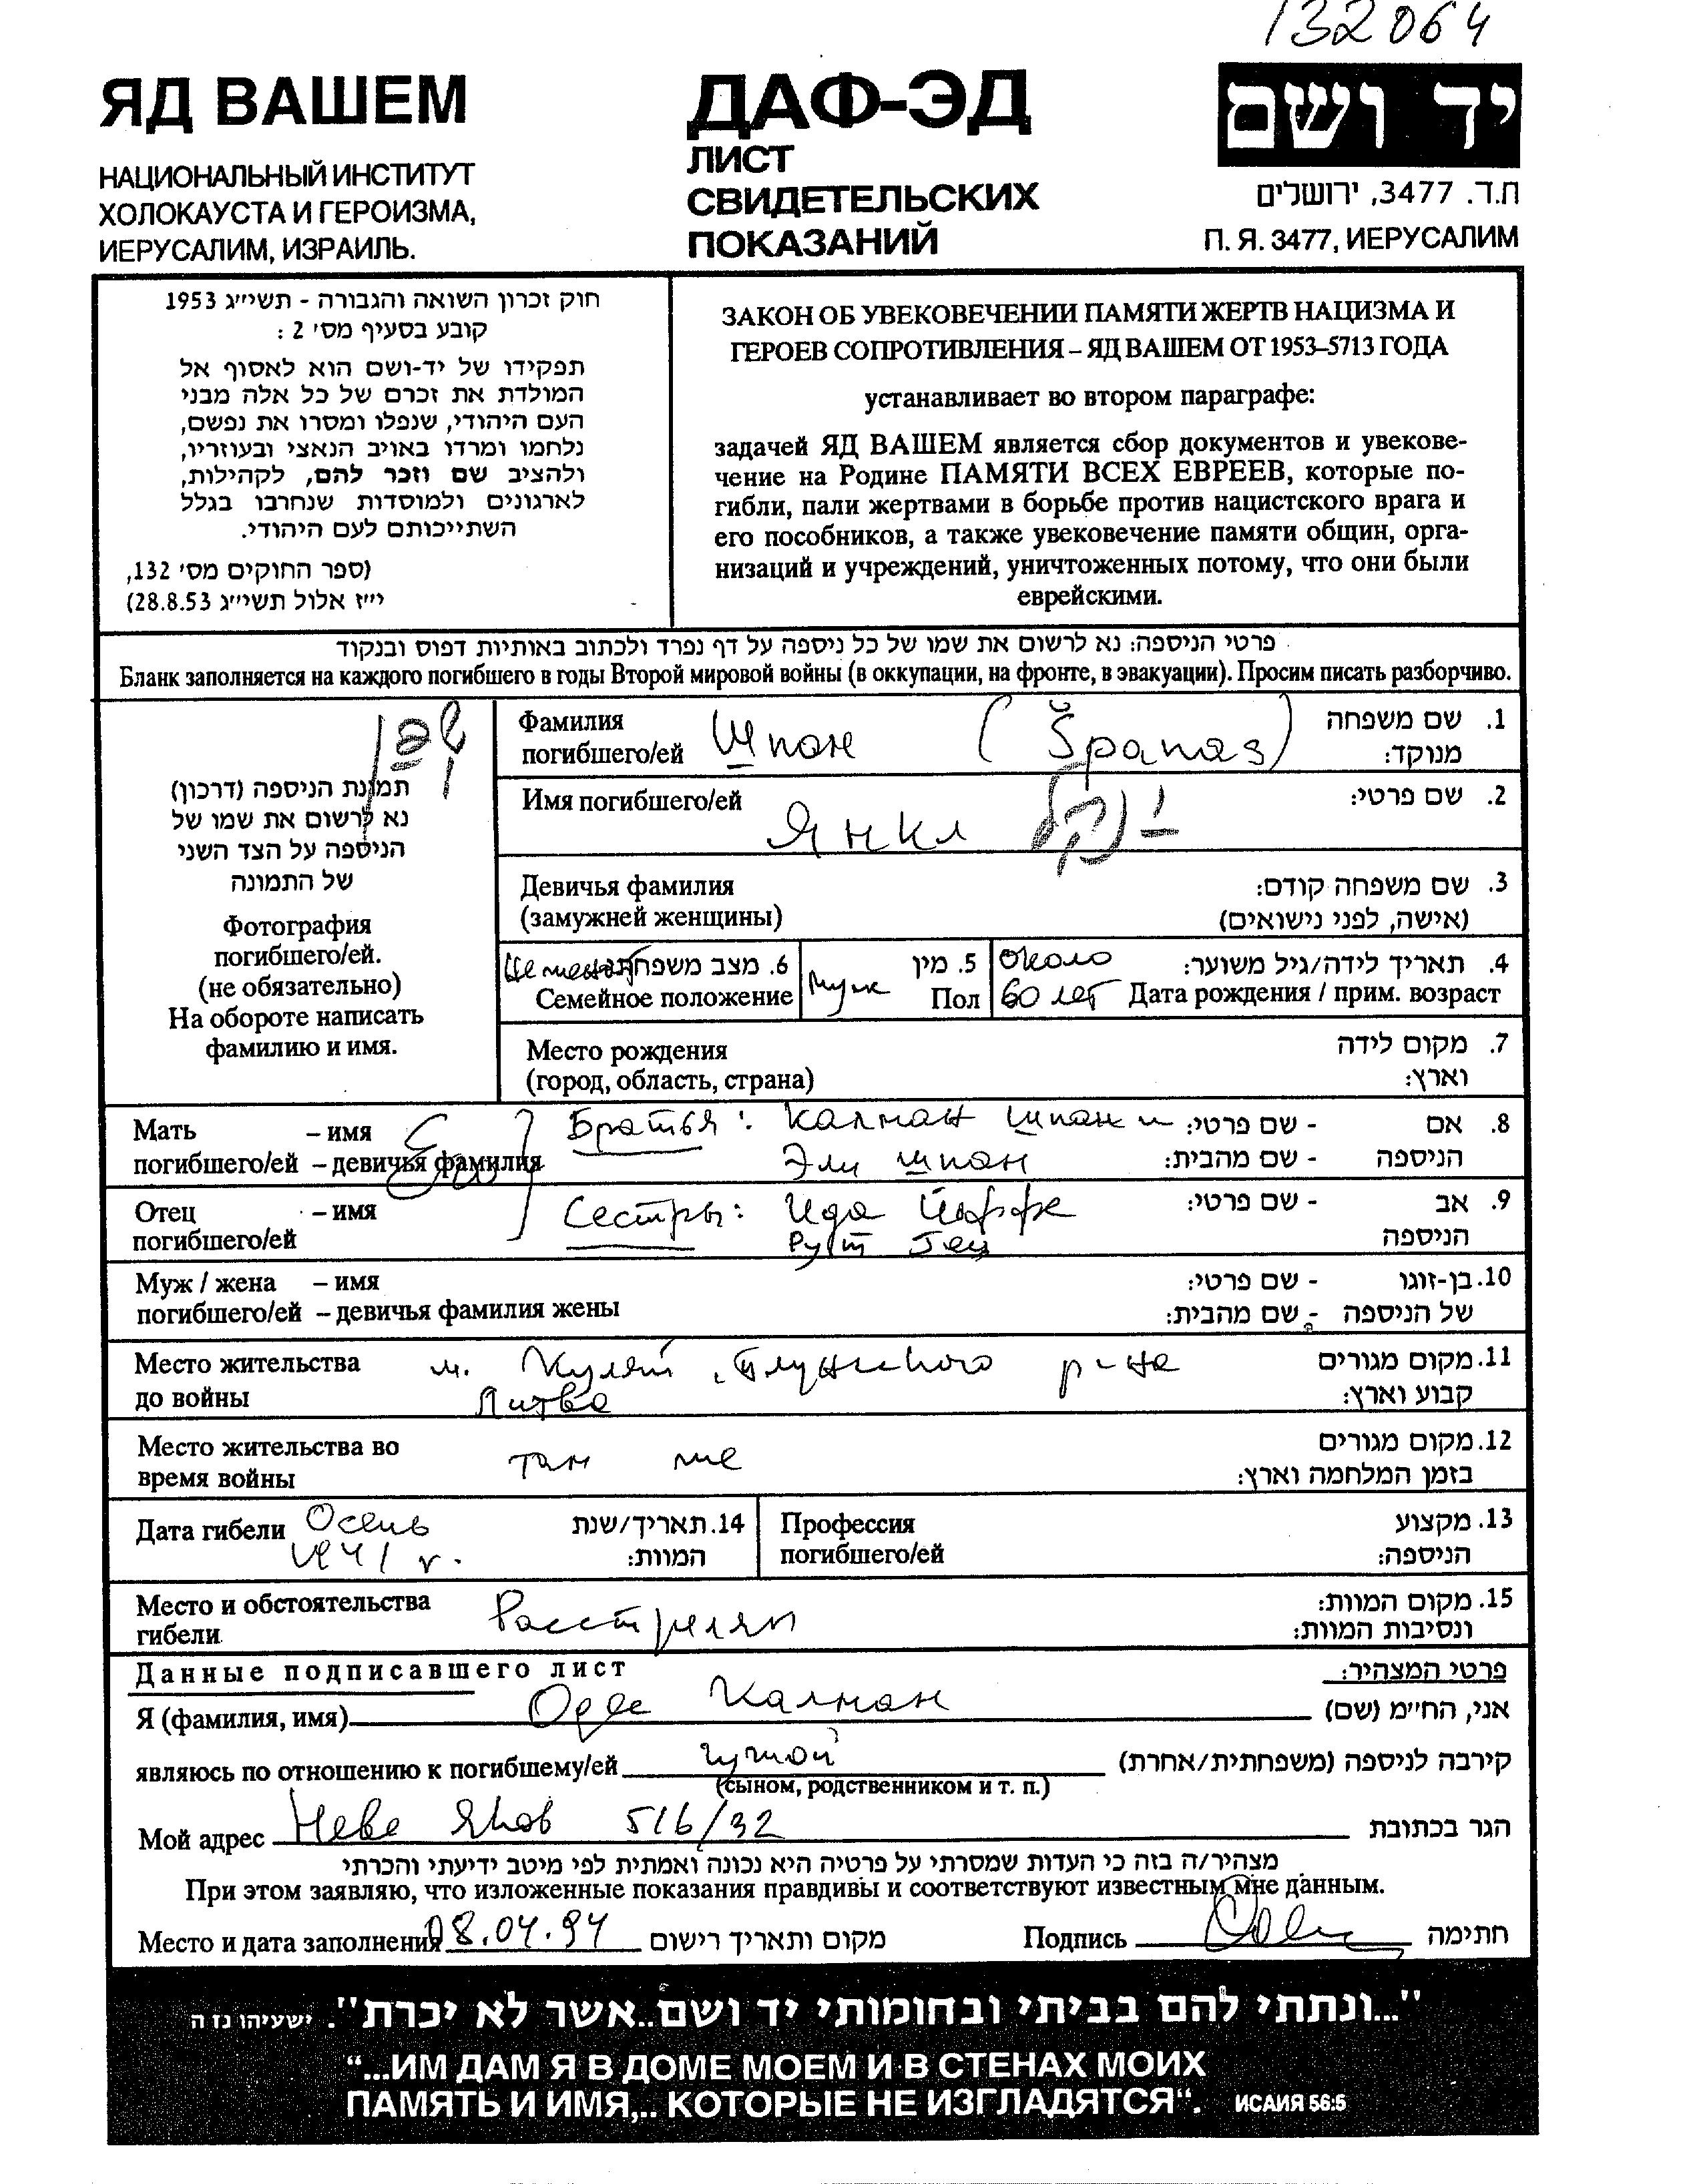 132064
ЯД ВАШЕМ
НАЦИОНАЛЬНЫЙ ИНСТИТУТ
ХОЛОКАУСТА И ГЕРОИЗМА,
ИЕРУСАЛИМ, ИЗРАИЛЬ.
ДАФ-ЭД
ЛИСТ
СВИДЕТЕЛЬСКИХ
ПОКАЗАНИЙ
יד ושם
ת.ד. 3477, ירושלים
П. Я. 3477, ИЕРУСАЛИМ
חוק זכרון השואה והגבורה - תשי״ג 1953
קובע בסעיף מס׳ 2 :
תפקידו של יד-ושם הוא לאסוף אל
המולדת את זכרם של כל אלה מבני
העם היהודי, שנפלו ומסרו את נפשם,
נלחמו ומרדו באויב הנאצי ובעוזריו,
ולהציב שם וזכר להם, לקהילות,
לארגונים ולמוסדות שנחרבו בגלל
השתייכותם לעם היהודי.
(ספר החוקים מס׳ 132,
י״ז אלול תשי״ג 28.8.53)
ЗАКОН ОБ УВЕКОВЕЧЕНИИ ПАМЯТИ ЖЕРТВ НАЦИЗМА И
ГЕРОЕВ СОПРОТИВЛЕНИЯ – ЯД ВАШЕМ ОТ 1953–5713 ГОДА
устанавливает во втором параграфе:
задачей ЯД ВАШЕМ является сбор документов и увекове-
чение на Родине ПАМЯТИ ВСЕХ ЕВРЕЕВ, которые по-
гибли, пали жертвами в борьбе против нацистского врага и
его пособников, а также увековечение памяти общин, орга-
низаций и учреждений, уничтоженных потому, что они были
еврейскими.
פרטי הניספה: נא לרשום את שמו של כל ניספה על דף נפרד ולכתוב באותיות דפוס ובנקוד
Бланк заполняется на каждого погибшего в годы Второй мировой войны (в оккупации, на фронте, в эвакуации). Просим писать разборчиво.
תמונת הניספה (דרכון)
נא לרשום את שמו של
הניספה על הצד השני
של התמונה
Фотография
погибшего/ей.
(не обязательно)
На обороте написать
фамилию и имя.
Фамилия Шпан (Španas) 1. שם משפחה
погибшего/ей מנוקד:
Имя погибшего/ей Янкл יַנקל 2. שם פרטי:
Девичья фамилия 3. שם משפחה קודם:
(замужней женщины) (אישה, לפני נישואים)
6. מצב משפחתי 5. מין около 4. תאריך לידה/גיל משוער:
Семейное положение муж Пол 60 лет Дата рождения / прим. возраст
Место рождения 7. מקום לידה
(город, область, страна) וארץ:
Мать – имя Братья: Калман Шпан и - שם פרטי: 8. אם
погибшего/ей – девичья фамилия Эли Шпан - שם מהבית: הניספה
Отец – имя Сестры: Ида Йоффе - שם פרטי: 9. אב
погибшего/ей Рут Гец הניספה
Муж / жена – имя - שם פרטי: 10. בן-זוגו
погибшего/ей – девичья фамилия жены - שם מהבית: של הניספה
Место жительства м. Куляй, Плунгского р-на 11. מקום מגורים
до войны Литва קבוע וארץ:
Место жительства во там же 12. מקום מגורים
время войны בזמן המלחמה וארץ:
Дата гибели Осень 14. תאריך/שנת Профессия 13. מקצוע
1941 г. המוות: погибшего/ей הניספה:
Место и обстоятельства Расстрелян 15. מקום המוות:
гибели. ונסיבות המוות:
Данные подписавшего лист פרטי המצהיר:
Я (фамилия, имя) Орде Калман אני, הח״מ (שם)
являюсь по отношению к погибшему/ей чужой קירבה לניספה (משפחתית/אחרת)
(сыном, родственником и т. п.)
Мой адрес Неве Яков 516/32 הגר בכתובת
מצהיר/ה בזה כי העדות שמסרתי על פרטיה היא נכונה ואמתית לפי מיטב ידיעתי והכרתי
При этом заявляю, что изложенные показания правдивы и соответствуют известным мне данным.
Место и дата заполнения 08.04.94 מקום ותאריך רישום Подпись חתימה
"...ונתתי להם בביתי ובחומותי יד ושם..אשר לא יכרת". ישעיהו נז ה
“...ИМ ДАМ Я В ДОМЕ МОЕМ И В СТЕНАХ МОИХ
ПАМЯТЬ И ИМЯ,.. КОТОРЫЕ НЕ ИЗГЛАДЯТСЯ“. ИСАИЯ 56:5